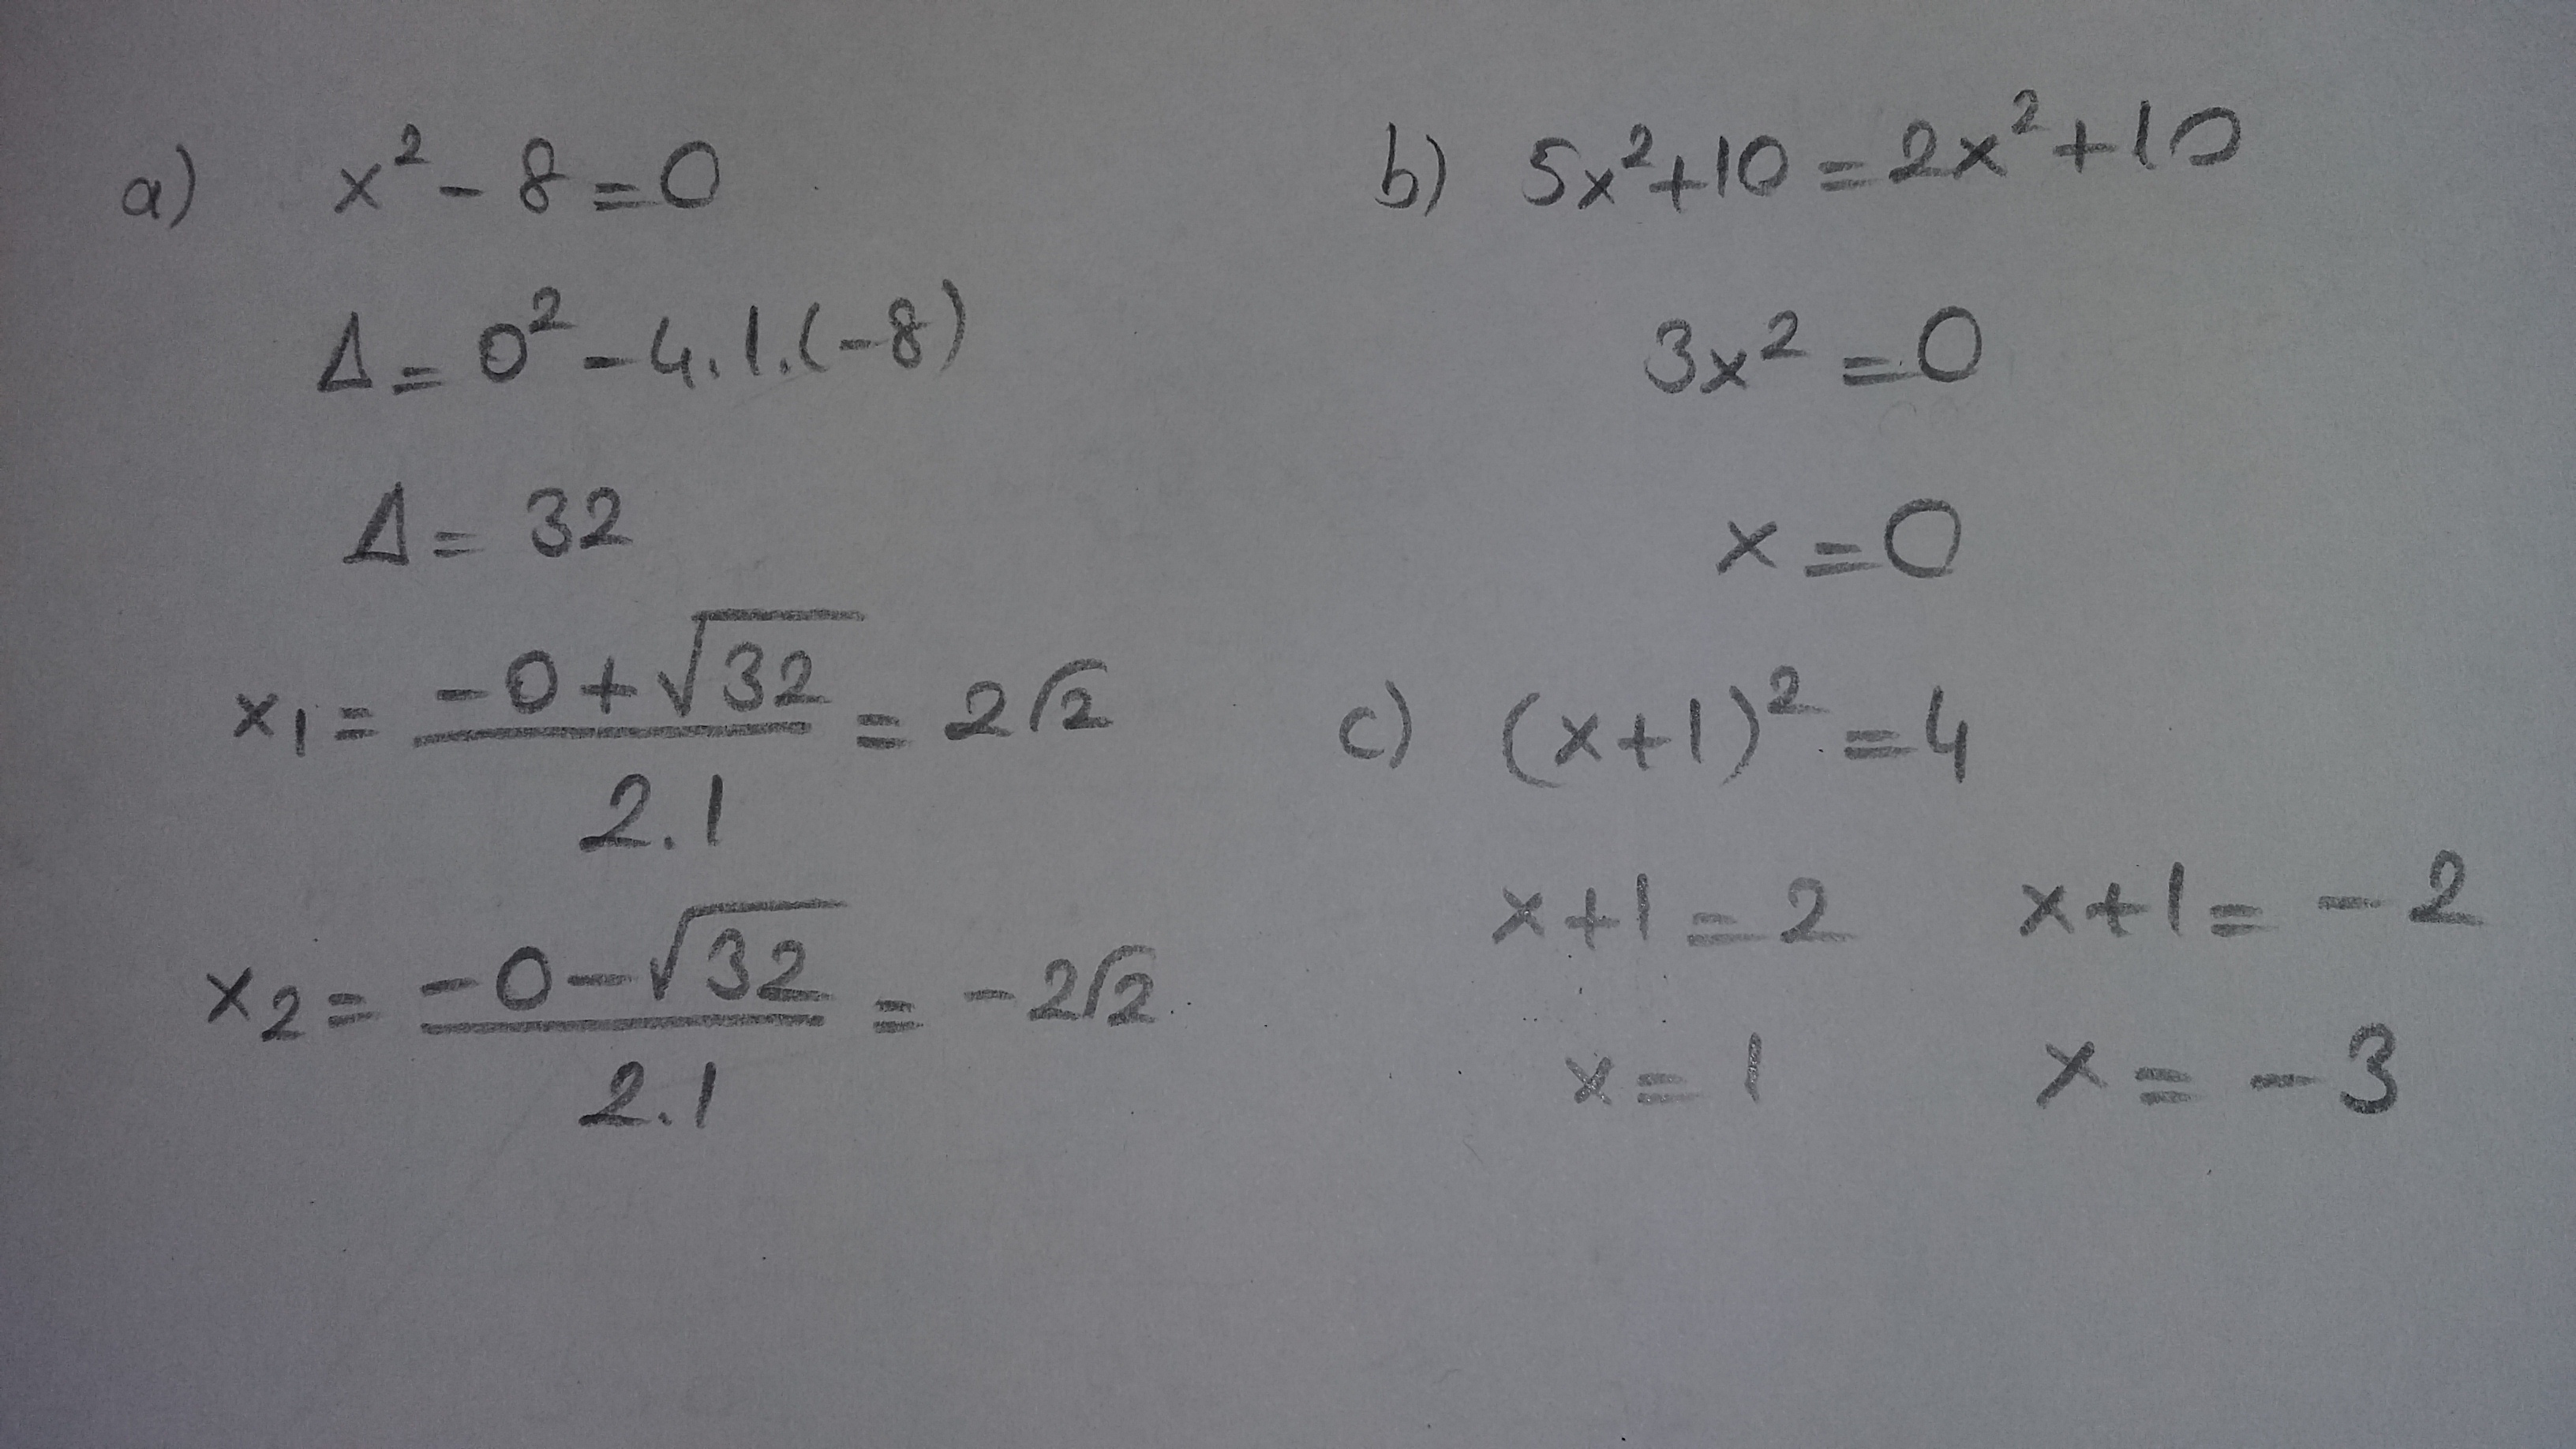 a) x² - 8 = 0
Δ = 0² - 4.1.(-8)
Δ = 32
x₁ = (-0 + √32) / 2.1 = 2√2
x₂ = (-0 - √32) / 2.1 = -2√2
b) 5x² + 10 = 2x² + 10
3x² = 0
x = 0
c) (x+1)² = 4
x+1 = 2 x+1 = -2
x = 1 x = -3